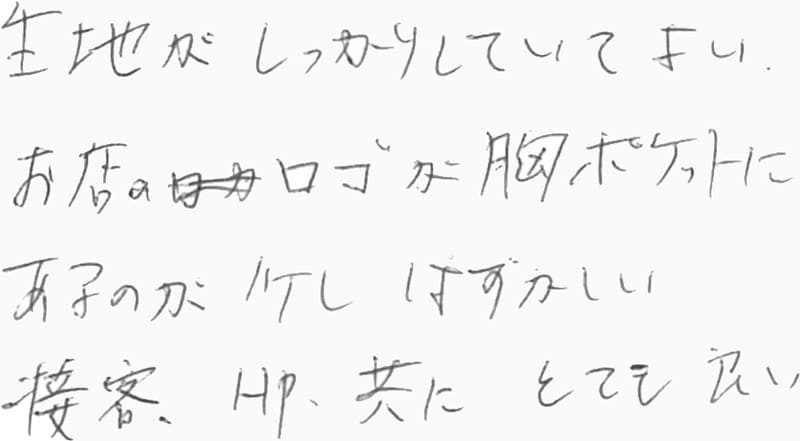 生地がしっかりしていてよい.
お店のロゴが胸ポケットに
あるのが少し はずかしい
接客、HP、共に とても 良い